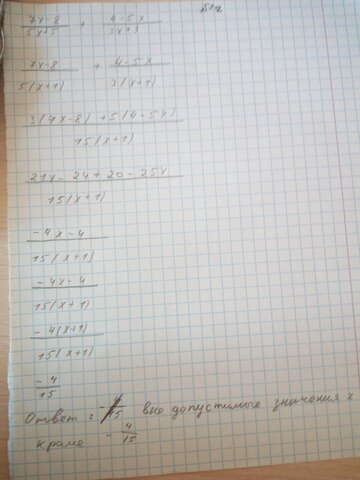 7x-8/5x+5 + 4-5x/3x+3
7x-8/5(x+1) + 4-5x/3(x+1)
3(7x-8)+5(4-5x)/15(x+1)
21x-24+20-25x/15(x+1)
-4x-4/15(x+1)
-4x-4/15(x+1)
-4(x+1)/15(x+1)
-4/15
Ответ: все допустимые значения x
кроме -4/15